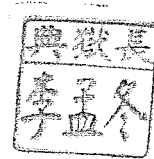 典獄長
李孟冬